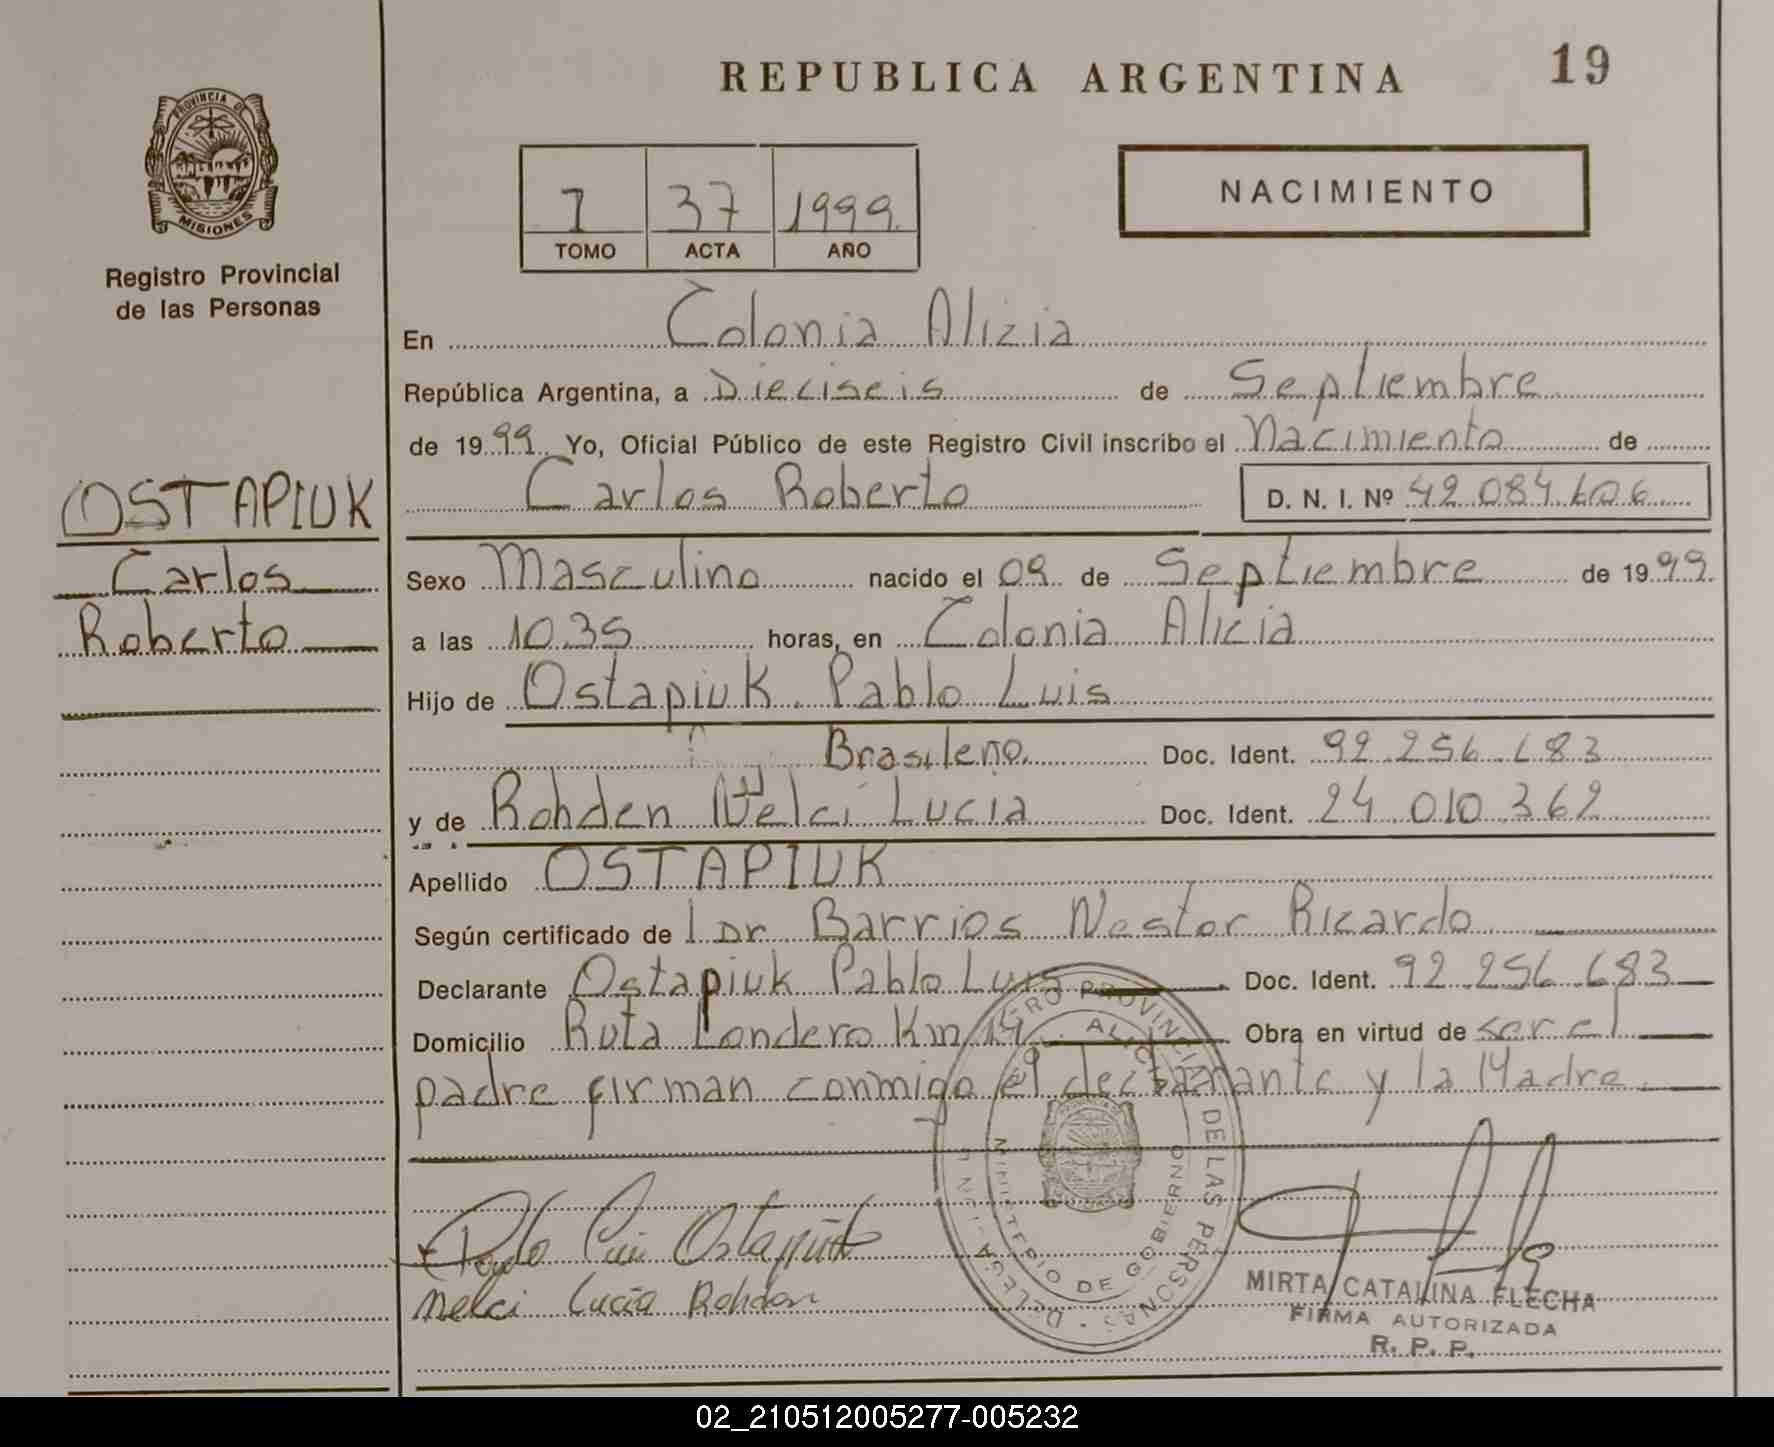 19
REPUBLICA ARGENTINA
PROVINCIA DE
MISIONES
Registro Provincial
de las Personas
1 37 1999
TOMO ACTA AÑO
NACIMIENTO
En Colonia Alizia
República Argentina, a Dieciseis de Septiembre
de 1999 Yo, Oficial Público de este Registro Civil inscribo el Nacimiento de
Carlos Roberto D. N. I. Nº 42.084.606
OSTAPIUK
Carlos
Roberto
Sexo Masculino nacido el 09 de Septiembre de 1999
a las 10.35 horas, en Colonia Alicia
Hijo de Ostapiuk. Pablo Luis
Brasileno. Doc. Ident. 92.256.683
y de Rohden Nelci Lucia Doc. Ident. 24.010.362
Apellido OSTAPIUK
Según certificado de 1 Dr Barrios Nestor Ricardo
Declarante Ostapiuk Pablo Luis Doc. Ident. 92.256.683
Domicilio Ruta Londero Km 14 Obra en virtud de ser el
padre firman conmigo el declarante y la Madre.
REGISTRO PROVINCIAL DE LAS PERSONAS
MINISTERIO DE GOBIERNO
Pablo Luis Ostapiuk
Nelci Lucia Rohden
MIRTA CATALINA FLECHA
FIRMA AUTORIZADA
R. P. P.
02_210512005277-005232